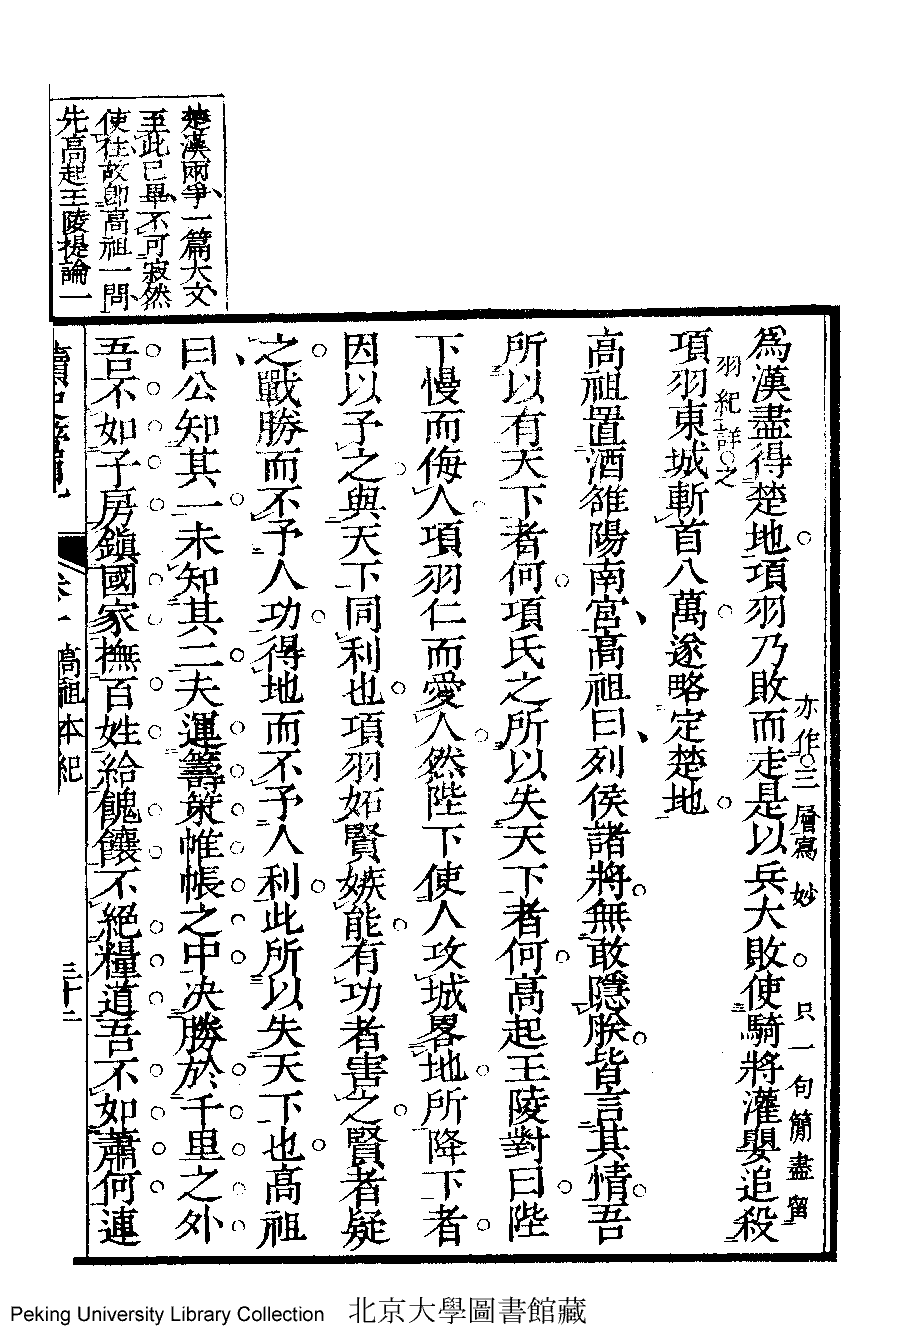 楚漢兩爭一篇大文
至此已畢不可寂然
使住故卽高祖一問
先高起王陵提論一
爲漢盡得楚地項羽乃敗而走是以兵大敗使騎將灌嬰追殺
亦作三層寫妙
只一句簡盡留
羽紀詳之
項羽東城斬首八萬遂略定楚地
高祖置酒雒陽南宮高祖曰列侯諸將無敢隱朕皆言其情吾
所以有天下者何項氏之所以失天下者何高起王陵對曰陛
下慢而侮人項羽仁而愛人然陛下使人攻城畧地所降下者
因以予之與天下同利也項羽妬賢嫉能有功者害之賢者疑
之戰勝而不予人功得地而不予人利此所以失天下也高祖
曰公知其一未知其二夫運籌策帷帳之中决勝於千里之外
吾不如子房鎮國家撫百姓給餽饟不絕糧道吾不如蕭何連
高祖本紀
三十二
Peking University Library Collection 北京大學圖書館藏